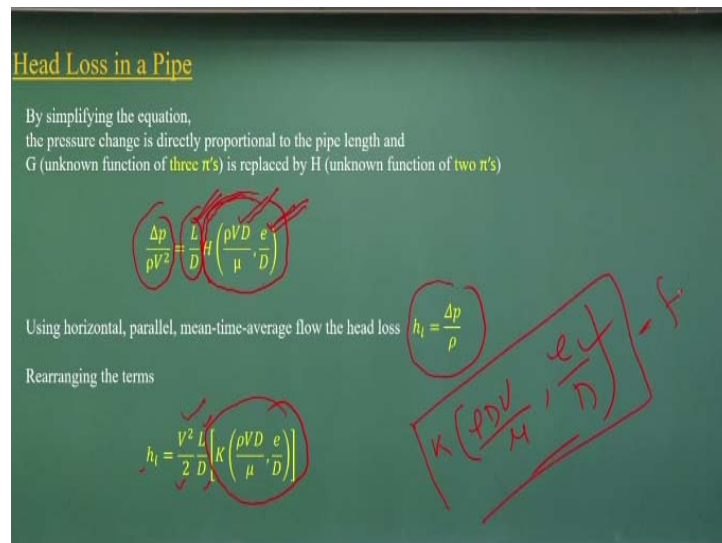 Head Loss in a Pipe
By simplifying the equation,
the pressure change is directly proportional to the pipe length and
G (unknown function of three π's) is replaced by H (unknown function of two π's)
Δp/ρV² = L/D H (ρVD/μ, e/D)
Using horizontal, parallel, mean-time-average flow the head loss h_l = Δp/ρ
Rearranging the terms
K (ρDV/μ, e/D) - f
h_l = V²/2 L/D [K (ρVD/μ, e/D)]